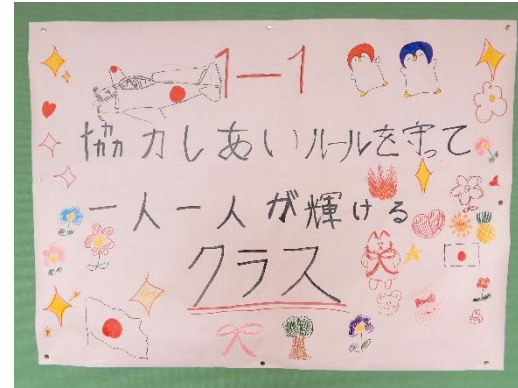 1-1
協力しあいルールを守って
一人一人が輝ける
クラス